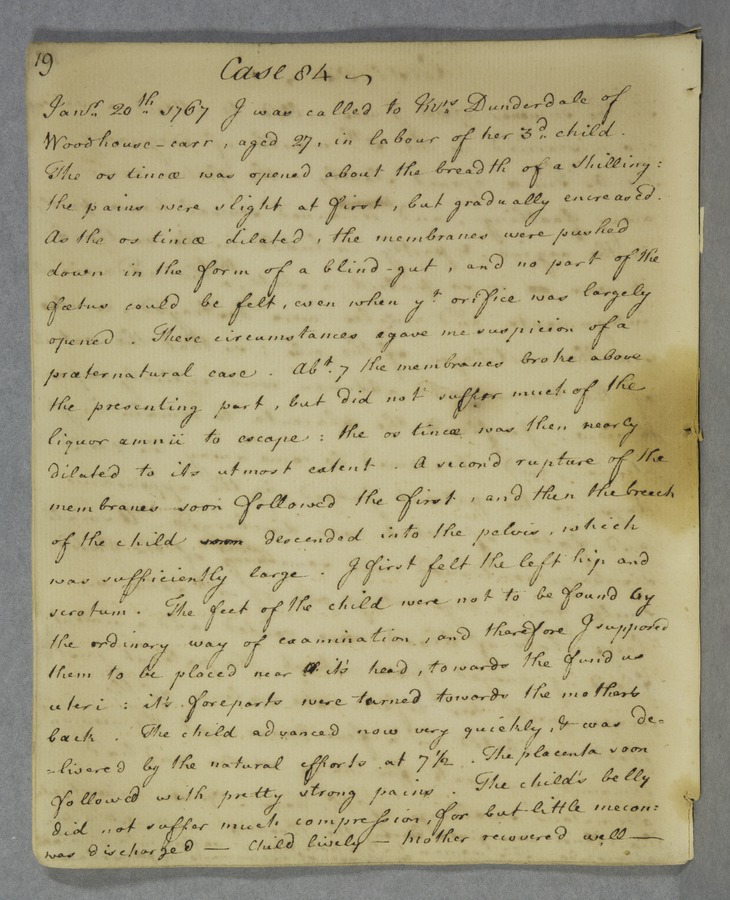 19
Case 84
Janry. 20th. 1767 I was called to Mrs. Dunderdale of
Woodhouse-carr, aged 27, in labour of her 3d. child.
The os tincæ was opened about the breadth of a shilling:
the pains were slight at first, but gradually encreased.
As the os tincæ dilated, the membranes were pushed
down in the form of a blind-gut, and no part of the
fœtus could be felt, even when yt. orifice was largely
opened. These circumstances gave me suspicion of a
præternatural case. Abt. 7 the membranes broke above
the presenting part, but did not suffer much of the
liquor amnii to escape: the os tincæ was then nearly
dilated to its utmost extent. A second rupture of the
membranes soon followed the first, and then the breech
of the child descended into the pelvis, which
was sufficiently large. I first felt the left hip and
scrotum. The feet of the child were not to be found by
the ordinary way of examination, and therefore I supposed
them to be placed near it's head, towards the fundus
uteri: it's foreparts were turned towards the mothers
back. The child advanced now very quickly, & was de=
=livered by the natural efforts at 7½. The placenta soon
followed with pretty strong pains. The child's belly
did not suffer much compression, for but little mecon:
was discharged — Child lively — Mother recovered well —